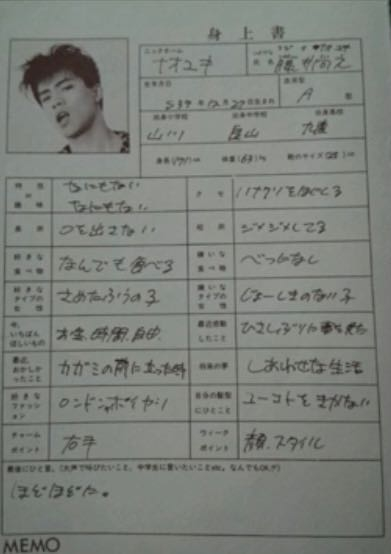 身上書
ニックネーム
ナオユキ
氏名
藤井尚之
生年月日
S39年12月27日生まれ
血液型
A型
出身小学校
出身中学校
出身高校
山川
身長(171)cm
体重(63)kg
靴のサイズ(25)cm
特技
なにもない
趣味
なにもない
クセ
ハナクソをほじくる
長所
口を出さない
短所
ジメジメしてる
好きな食べ物
なんでも食べる
嫌いな食べ物
べつになし
好きなタイプの女性
さめたふうの子
嫌いなタイプの女性
じょーしきのない子
今、いちばんほしいもの
お金、時間、自由
最近感動したこと
ひさしぶりに
最近、おかしかったこと
カガミの前に立った時
将来の夢
しあわせな生活
好きなファッション
ロンドンボーイ
自分の髪型にひとこと
ユーコトをきかない
チャームポイント
右手
ウィークポイント
顔、スタイル
最後にひと言。(大声で叫びたいこと、中学生に言いたいことetc. なんでもOKデ)
ほぞほぞだ。
MEMO